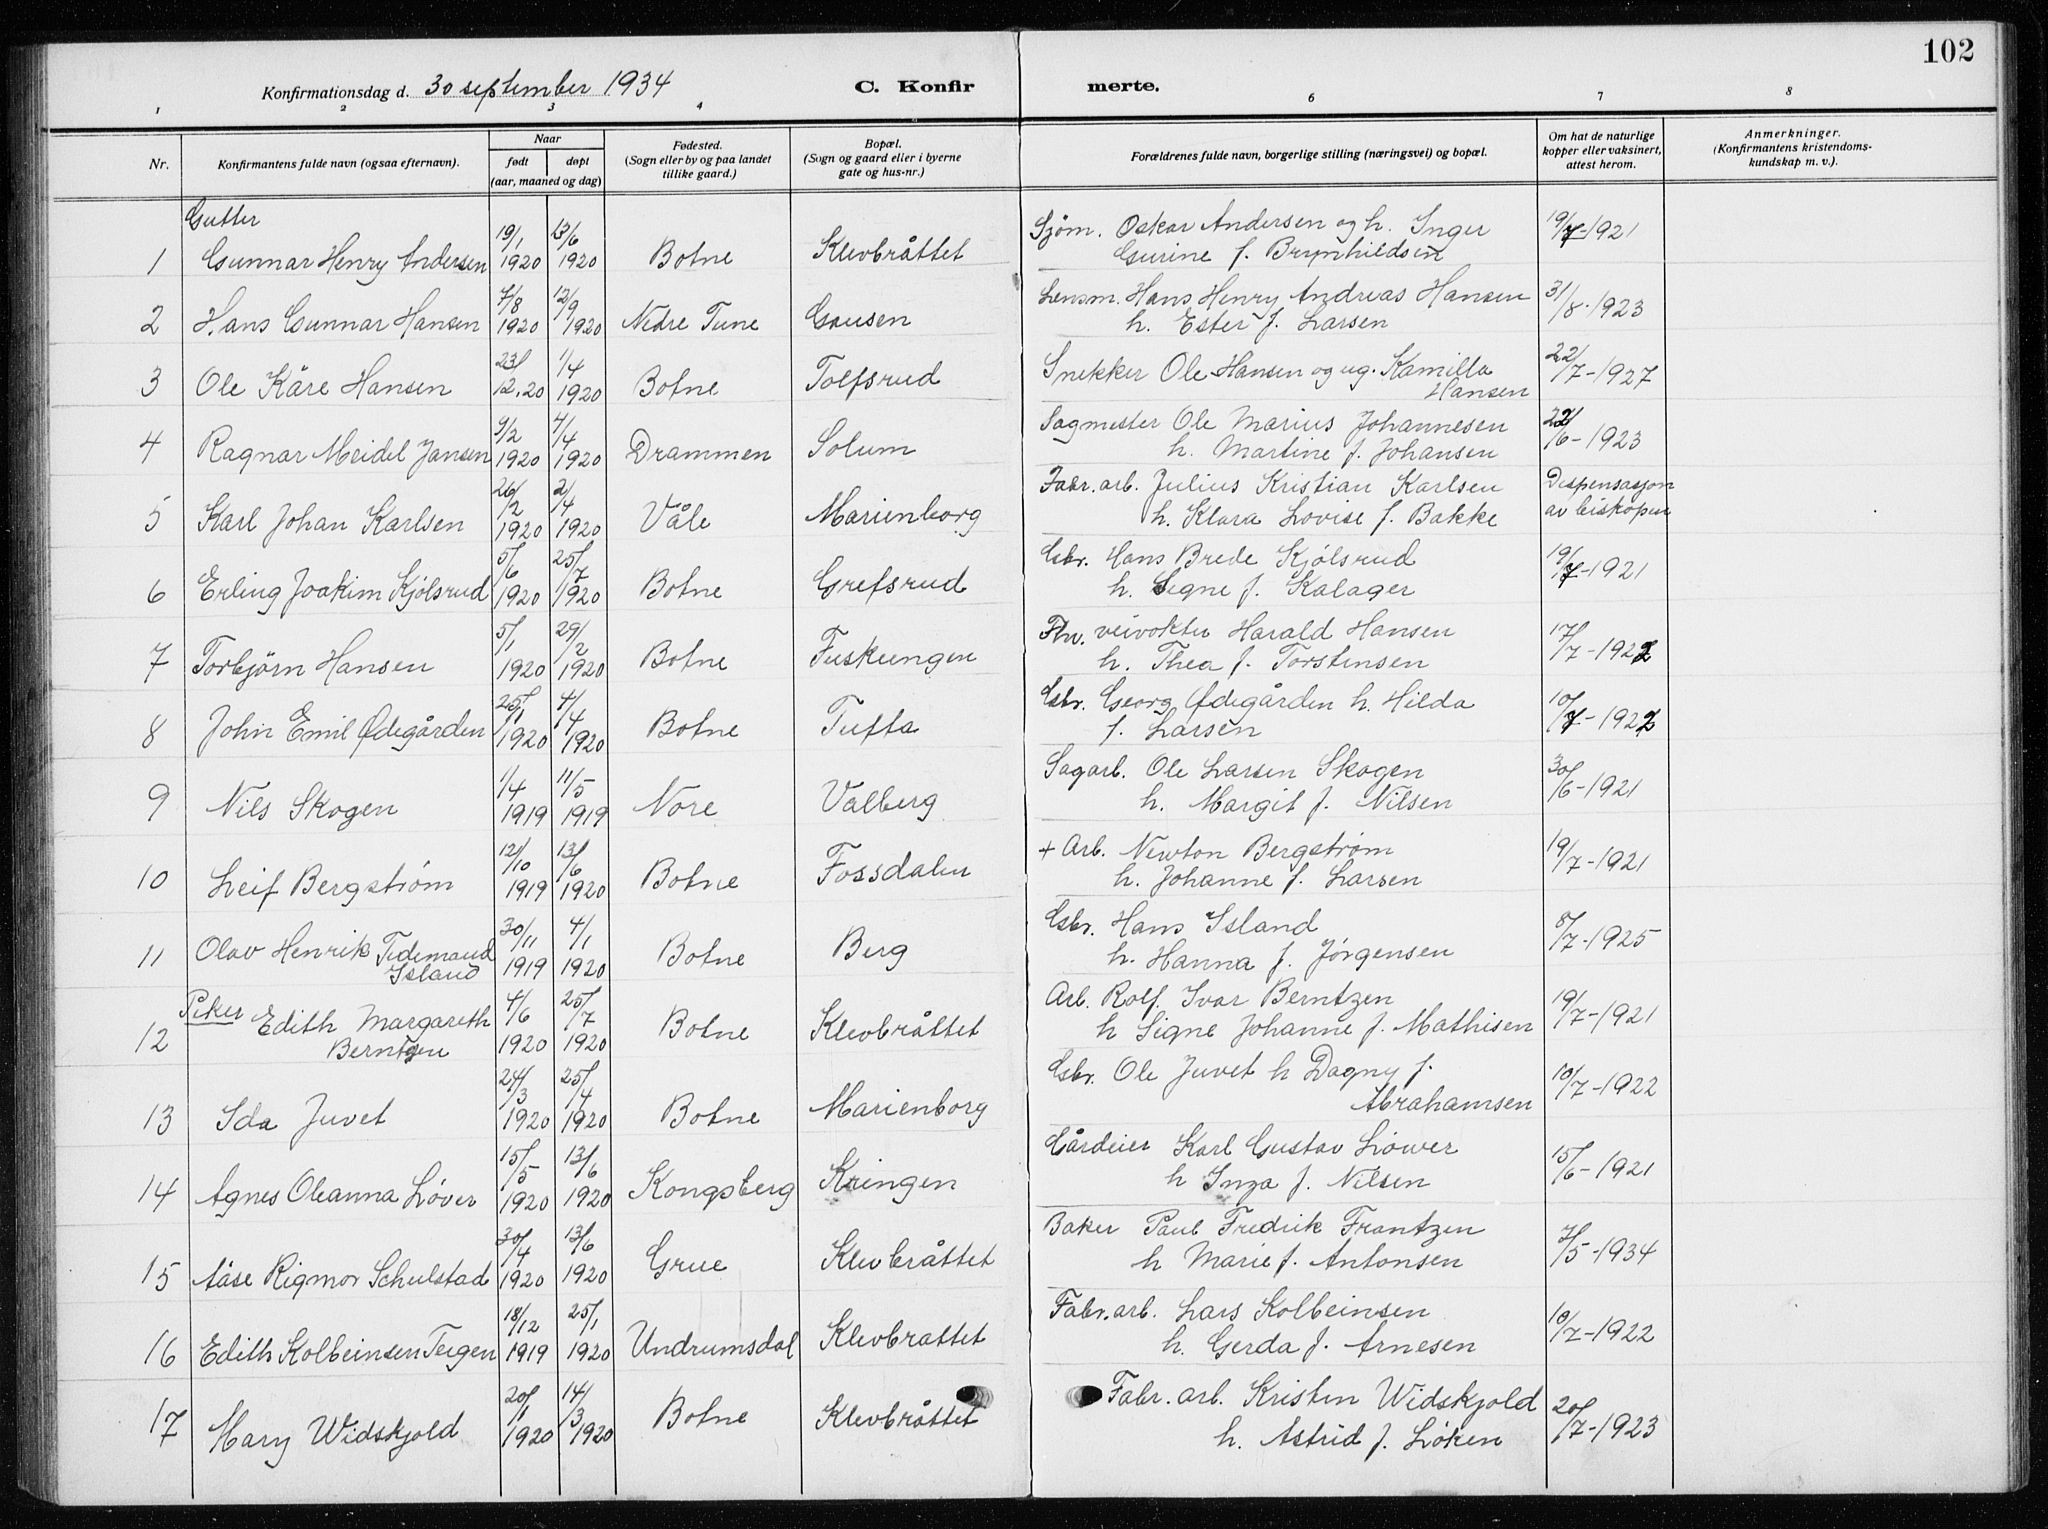 102
Konfirmationsdag d. 30 september 1934 C. Konfir merte.
1 2 3 4 6 7 8
Nr. Konfirmantens fulde navn (ogsaa efternavn). Naar født døpt (aar, maaned og dag) Fødested. (Sogn eller by og paa landet tillike gaard.) Bopæl. (Sogn og gaard eller i byerne gate og hus-nr.) Forældrenes fulde navn, borgerlige stilling (næringsvei) og bopæl. Om hat de naturlige kopper eller vaksinert, attest herom. Anmerkninger. (Konfirmantens kristendomskundskap m. v.).
Gutter
1 Gunnar Henry Andersen 19/1 1920 13/6 1920 Botne Klevbråttet Sjøm. Oskar Andersen og h. Inger 19/7-1921
Gurine f. Brynhildsen
2 Hans Gunnar Hansen 7/8 1920 12/9 1920 Nedre Tune Gausen Lensm. Hans Henry Andreas Hansen 31/8-1923
h. Ester f. Larsen
3 Ole Kåre Hansen 23/12.20 1/4 1920 Botne Tolfsrud Snekker Ole Hansen og ug. Kamilla 22/7-1927
Hansen
4 Ragnar Meidel Jansen 9/2 1920 4/4 1920 Drammen Solum Sagmester Ole Marius Johannesen 22/6-1923
h. Martine f. Johansen
5 Karl Johan Karlsen 26/2 1920 2/4 1920 Våle Marienborg Fabr. arb. Julius Kristian Karlsen Dispensasjon
h. Klara Lovise f. Bakke av biskopen
6 Erling Joakim Kjølsrud 5/6 1920 25/7 1920 Botne Grefsrud Gbr. Hans Brede Kjølsrud 19/7-1921
h. Signe f. Kalager
7 Torbjørn Hansen 5/1 1920 29/2 1920 Botne Fuskeungen Fhv. veivokter Harald Hansen 17/7-1922
h. Thea f. Torstensen
8 John Emil Ødegården 25/1 1920 4/4 1920 Botne Tufta Gbr. Georg Ødegården h. Hilda 10/7-1922
f. Larsen
9 Nils Skogen 1/4 1919 11/5 1919 Nore Valberg Sagarb. Ole Larsen Skogen 30/6-1921
h. Margit f. Nilsen
10 Leif Bergstrøm 12/10 1919 13/6 1920 Botne Fossdalen + Arb. Newton Bergstrøm 19/7-1921
h. Johanne f. Larsen
11 Olav Henrik Tidemand 30/11 1919 4/1 1920 Botne Berg Gbr. Hans Island 8/7-1925
Island h. Hanna f. Jørgensen
Piker
12 Edith Margareth 4/6 1920 25/7 1920 Botne Klevbråttet Arb. Rolf Ivar Berntzen 19/7-1921
Berntzen h Signe Johanne f. Mathisen
13 Ida Juvet 24/3 1920 25/4 1920 Botne Marienborg Gbr. Ole Juvet h Dagny f. 10/7-1922
Abrahamsen
14 Agnes Oleanna Løver 15/5 1920 13/6 1920 Kongsberg Kringen Gårdeier Karl Gustav Løwer 15/6-1921
h Inga f. Nilsen
15 Aase Rigmor Schulstad 30/4 1920 13/6 1920 Grue Klevbråttet Baker Paul Fredrik Frantzen 7/5-1934
h Marie f. Antonsen
16 Edith Kolbeinsen Teigen 18/12 1919 25/1 1920 Undrumsdal Klevbrattet Fabr. arb. Lars Kolbeinsen 10/7-1922
h. Gerda f. Arnesen
17 Mary Widskjold 20/1 1920 14/3 1920 Botne Klevbråttet Fabr. arb. Kristen Widskjold 20/7-1923
h. Astrid f. Løken